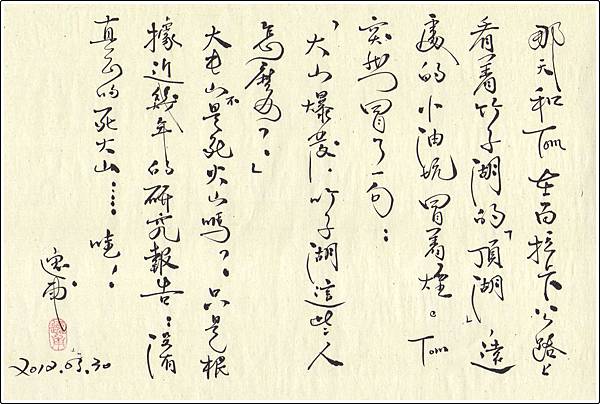 那天和Tom在百拉卡公路上
看着竹子湖的「頂湖」，遠
處的小油坑冒着煙。Tom
突然冒了一句：
「火山爆發，竹子湖這些人
怎麼办？」
大屯山不是死火山嗎？只是根
據近幾年的研究報告：沒有
真正的死火山……哇！
2012.05.30